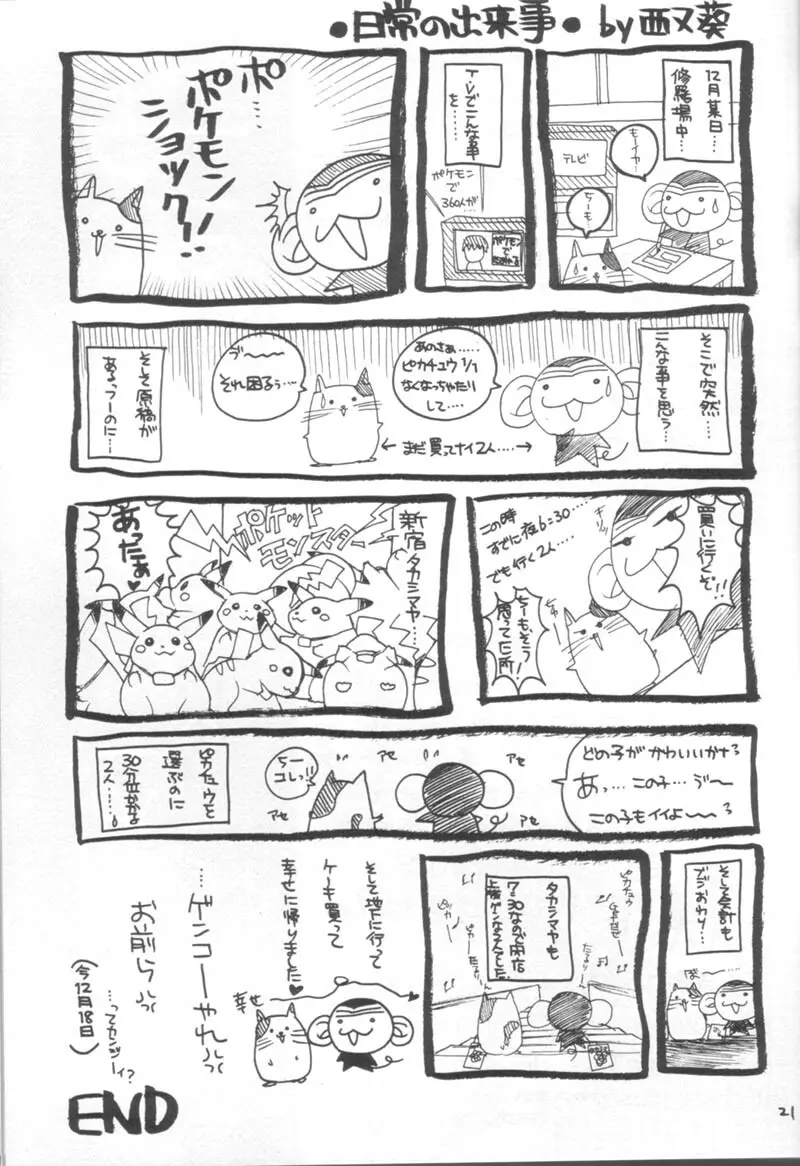 ●日常の出来事● by 西又葵
12月某日…
修羅場中…
もーイヤ…
ちーも…
テレビ
T.V.でこんな事
を……
ポケモン
で
360人が…
ポケモン
で
ポ……
ポケモン
ショック!!
そこで突然…
こんな事を思う…
あのさぁ……
ピカチュウ1/1
なくなっちゃたり
して……
← まだ買ってナイ2人…… →
ゔ〜〜
それ困るぅ…
そして原稿が
あるっつーのに…
買いに行くぞ!!
キリッ
この時
すでに夜6:30…
でも行く2人…
ちーもそう
思ってた所!
新宿タカシマヤ……
ポケット
モンスター
あったぁ♥
どの子がかわいいかな?
あっ…この子…ゔ〜
この子もイイよ〜〜?
アセ
アセ
アセ
アセ
ちー
コレっ!!
ピカチュウを
選ぶのに
30分位かかる
2人……
そして会計も
ブジおわり…
ば〜……
タカシマヤも
7:30なので閉店
ピカチュウ
ピッカー
そして地下に行って
ケーキ買って
幸せに帰りました♥
幸せ
…ゲンコーやれっっ
お前らっっ
…ってカンジーィ?
(今12月18日)
END
21